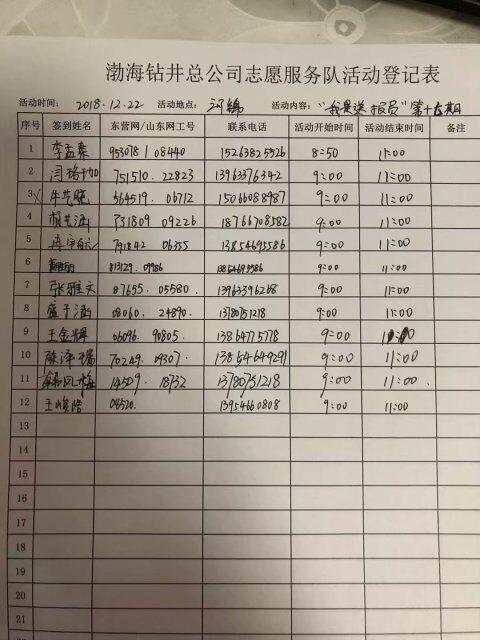 渤海钻井总公司志愿服务队活动登记表
活动时间： 2018.12.22 活动地点： 河锦 活动内容："我是送报员"第十五期
序号 签到姓名 东营网/山东网工号 联系电话 活动开始时间 活动结束时间 备注
1 李孟 953078 / 08440 15263825526 8=50 11:00
2 751510. 22823 13963376342 9=00 11=00
3 牛艺晓 564519. 06712 15066088987 9:00 11=00
4 731809 09226 18766708582 9:00 11=00
5 791842 06355 13854695586 9=00 11=00
6 813129. 09986 9=00 11=00
7 张雅文 87655. 05580 13963396268 9=00 11=00
8 盛子涵 08060. 24890. 13780751218 9=00 11=00
9 王金辉 06096. 90805. 13864775778 9=00
10 陈泽瑞 70249. 09307. 13864649291 9=00 11=00
11 14509. 18732 13780751218 9=00 11=00.
12 王峻浩 08520. 13954660808 9=00 11=00
13
14
15
16
17
18
19
20
21